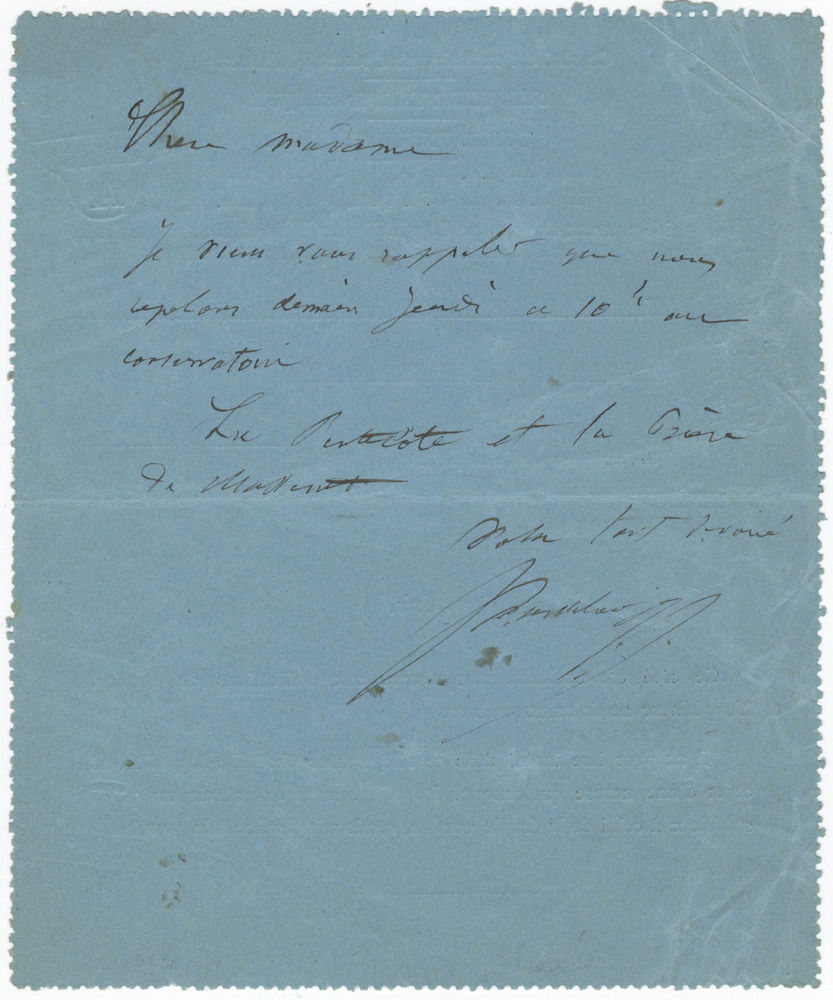 Chere madame
Je viens vous rappeler que nous
repetons demain jeudi a 10 h au
conservatoire
La Pentecôte et la
de Massenet
Votre tout devoué